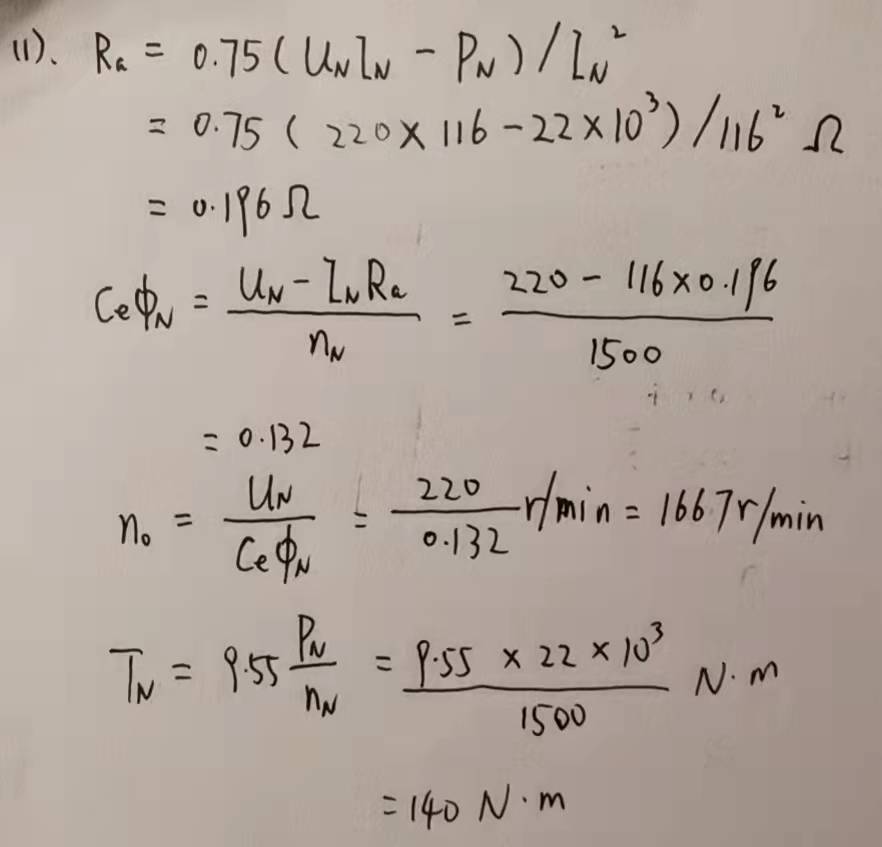 (1). Ra = 0.75(UNIN - PN)/IN²
= 0.75 ( 220×116-22×10³)/116² Ω
= 0.196Ω
CeΦN = (UN-INRa)/nN = (220- 116×0.196)/1500
= 0.132
n₀ = UN/CeΦN = 220/0.132 r/min = 1667r/min
TN = 9.55 PN/nN = 9.55 × 22 × 10³/1500 N·m
= 140 N·m